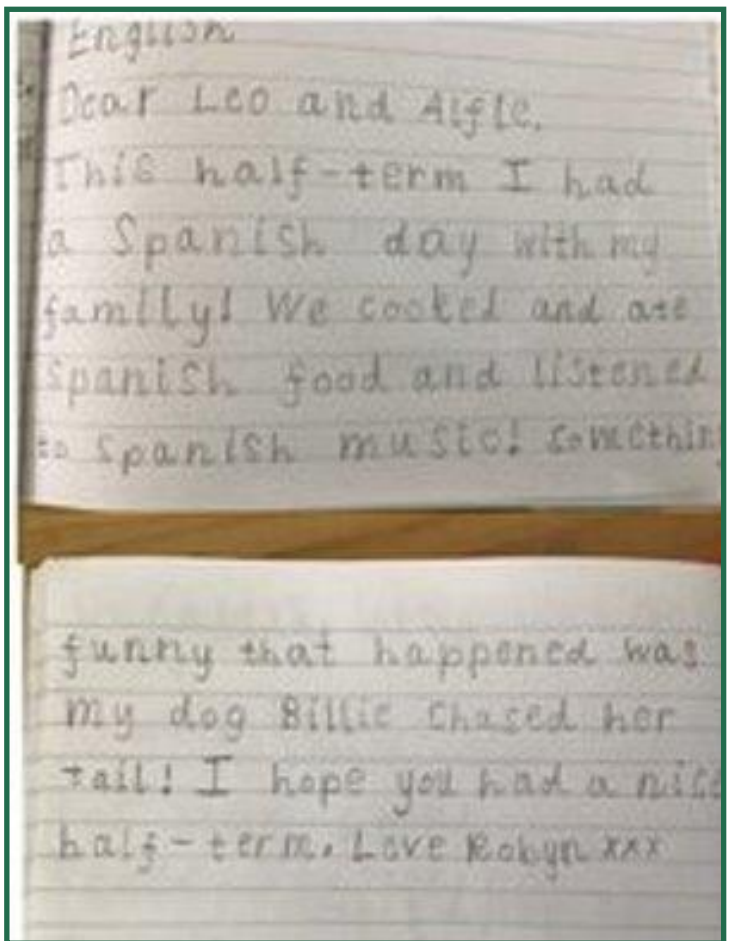 English
Dear Leo and Alfie,
This half-term I had
a Spanish day with my
family! We cooked and ate
Spanish food and listened
to Spanish music! Somethin
funny that happened was
my dog Billie chased her
tail! I hope you had a nice
half-term. Love Robyn xxx